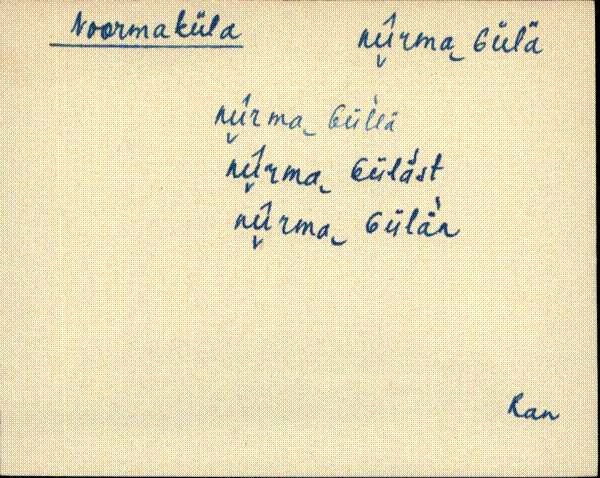 Noormaküla nū̬̂rma‿ Gülä
nū̬̂rma‿ Gül̀lä
nū̬̂rma‿ Gülä́st
nū̬̂rma‿ Gülä̀n
Ran